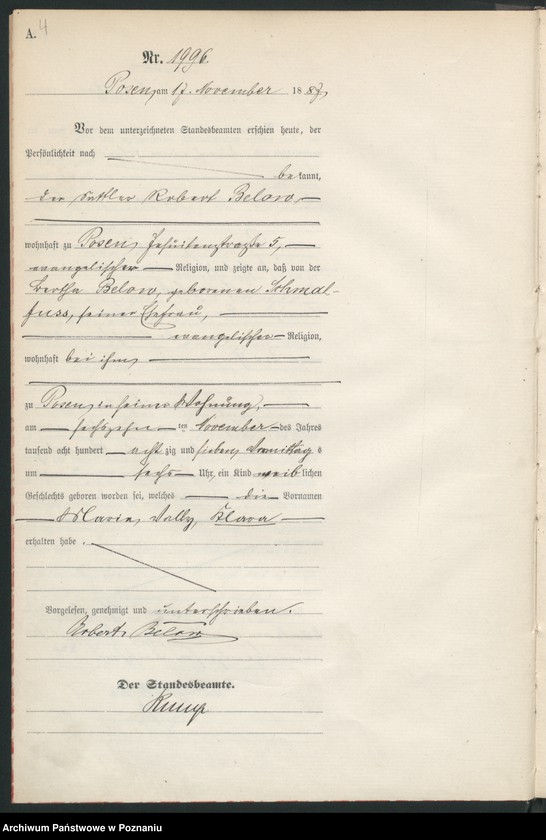 A. 4
Nr. 1996.
Posen, am 17. November 1887,
Vor dem unterzeichneten Standesbeamten erschien heute, der
Persönlichkeit nach
bekannt,
der Sattler Robert Below,
wohnhaft zu Posen, Jesuitenstraße 5,
evangelischer Religion, und zeigte an, daß von der
Bertha Below, geborenen Schmal-
fuss, seiner Ehefrau,
evangelischer Religion,
wohnhaft bei ihm,
zu Posen, in seiner Wohnung,
am sechszehn ten November des Jahres
tausend acht hundert acht zig und sieben, Vormittag s
um sechs Uhr, ein Kind weib lichen
Geschlechts geboren worden sei, welches die Vornamen
Maria, Vally, Klara
erhalten habe.
Vorgelesen, genehmigt und unterschrieben.
Robert Below
Der Standesbeamte.
Archiwum Państwowe w Poznaniu